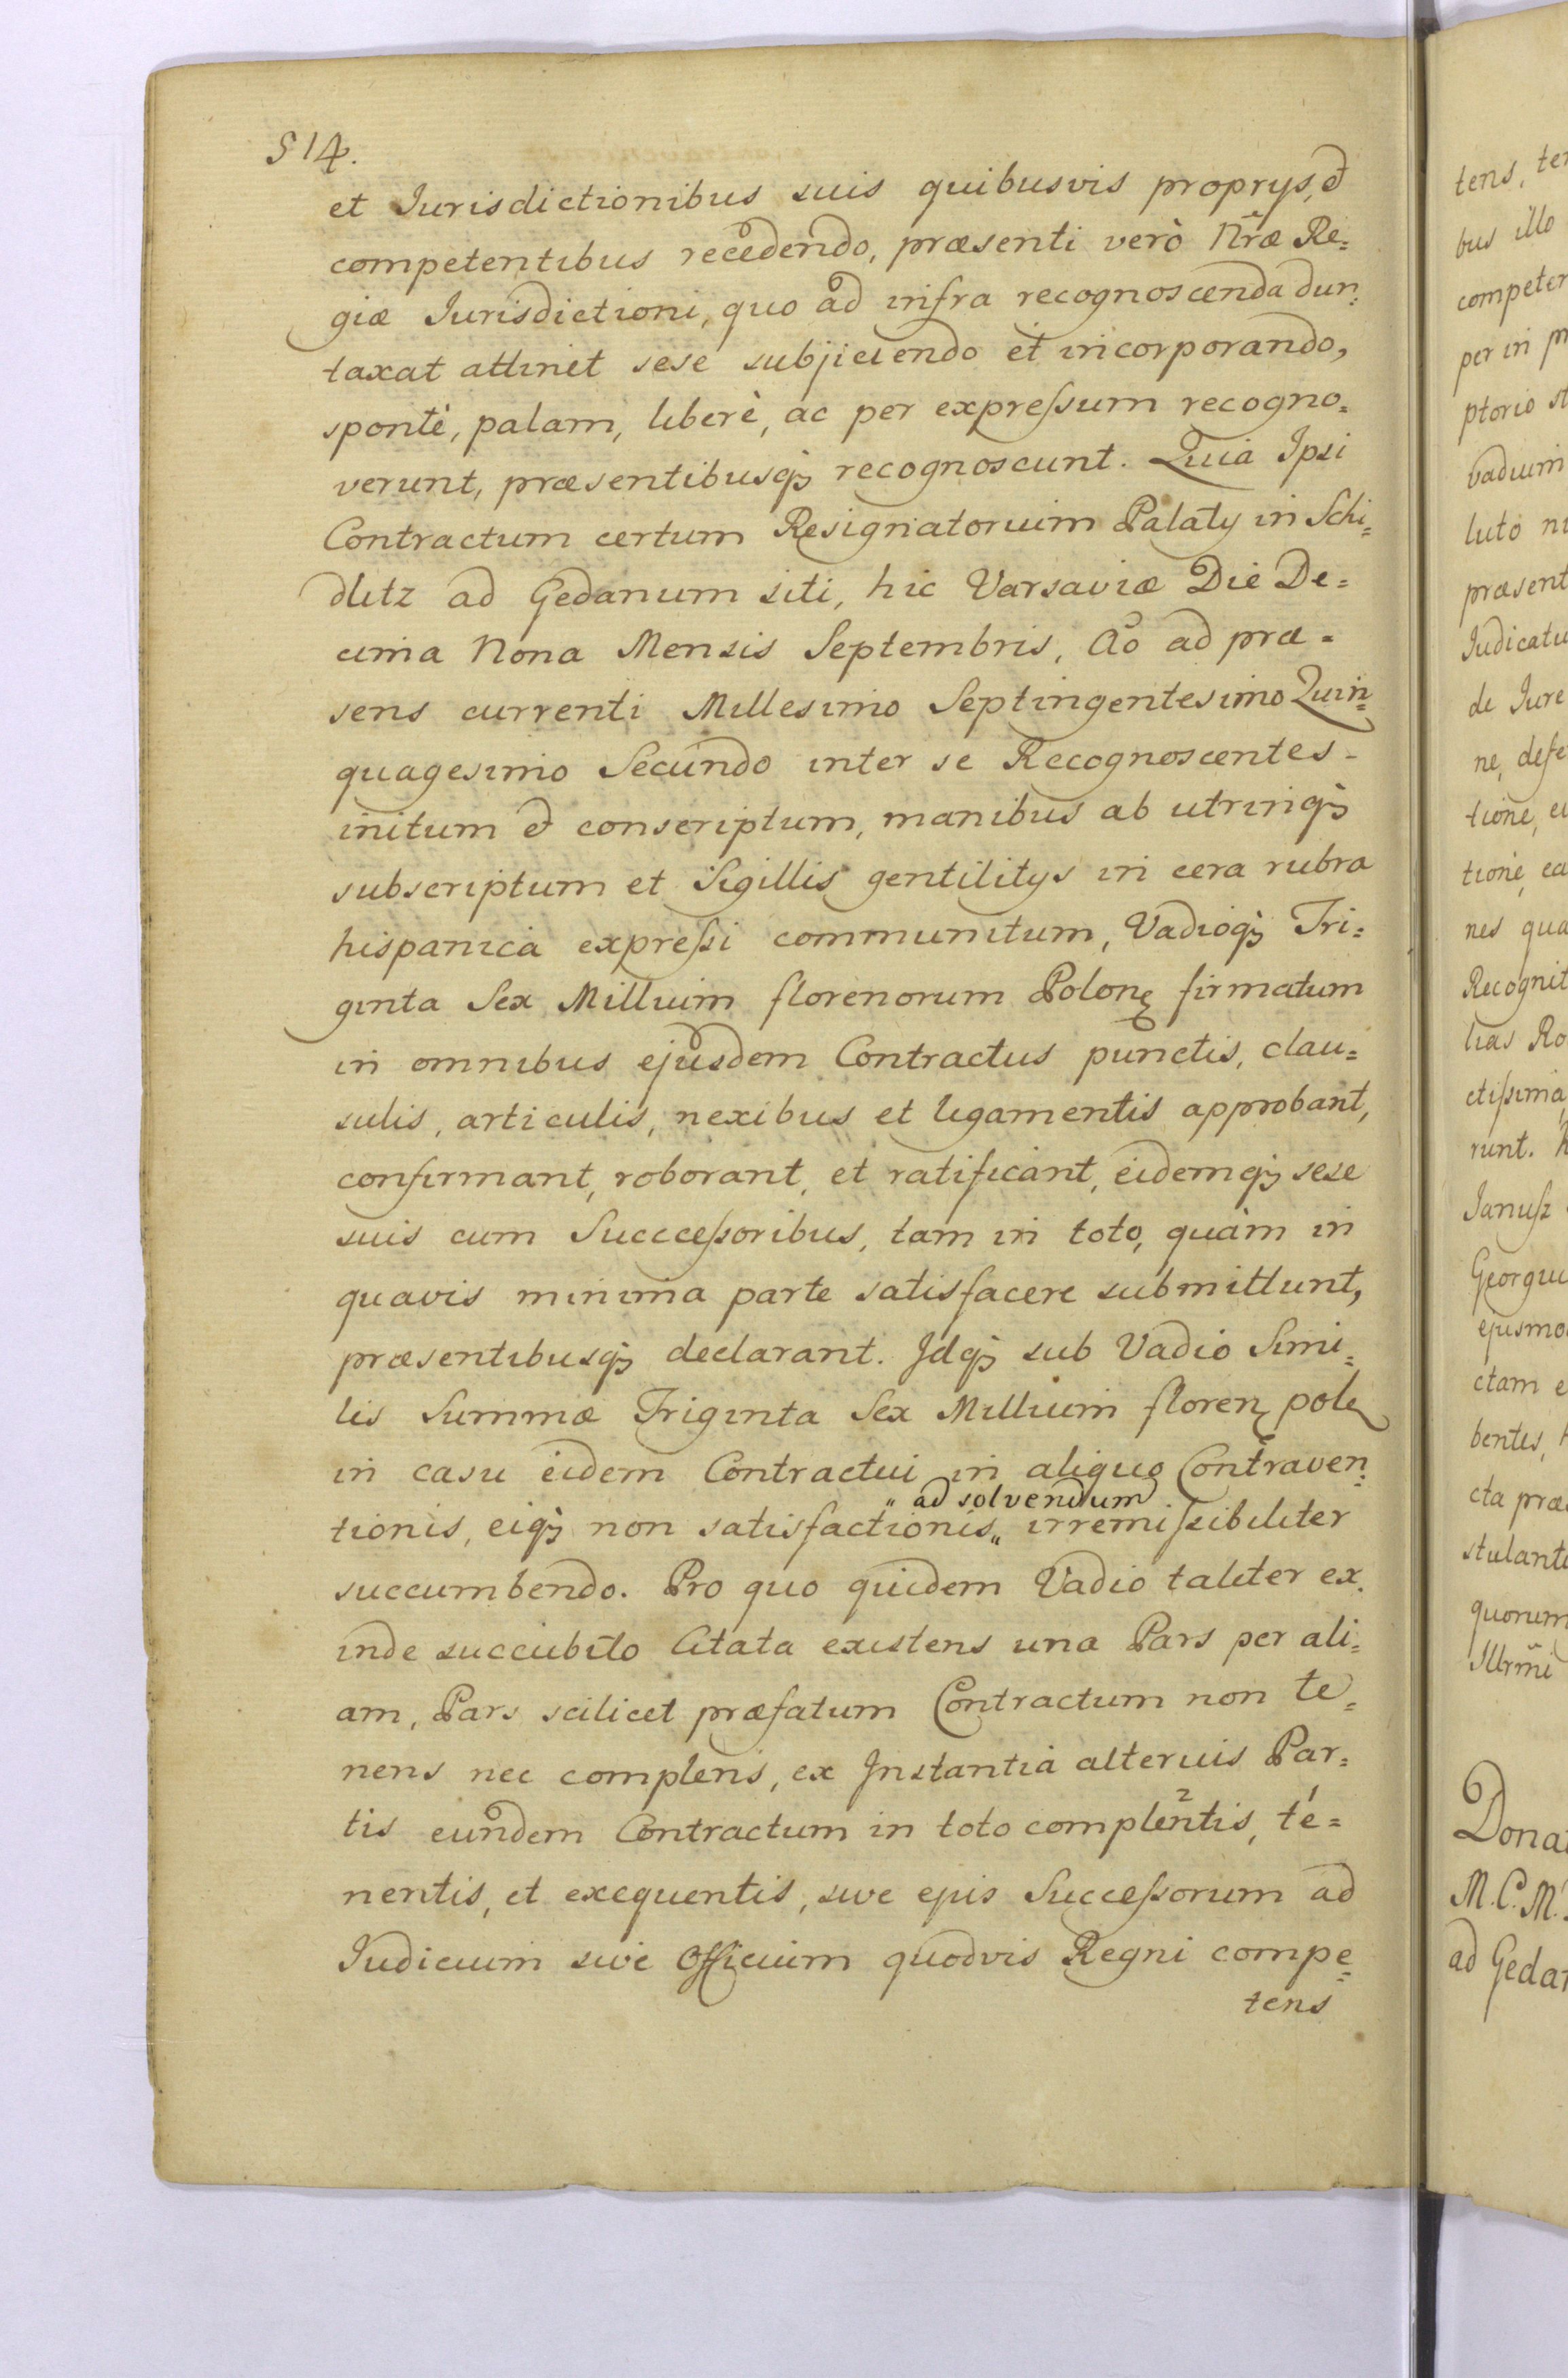 514.
et Iurisdictionibus suis quibusvis proprys, &
competentibus recedendo, præsenti verò Nr̃æ Re=
giæ Iurisdictioni, quo ad infra recognoscenda dun=
taxat attinet sese subjiciendo et incorporando,
spontè, palam, liberè, ac per expreſsum recogno=
verunt, præsentibusqꝫ recognoscunt. Quia Ipsi
Contractum certum Resignatorium Palaty in Schi=
dlitz ad Gedanum siti, hic Varsaviæ Die De=
cima Nona Mensis Septembris, Aõ ad præ=
sens currenti Millesimo Septingentesimo Quin=
quagesimo Secundo inter se Recognoscentes -
initum & conscriptum, manibus ab utrinqꝫ
subscriptum et Sigillis gentilitys in cera rubra
hispanica expreſsi communitum, Vadioqꝫ Tri=
ginta Sex Millium florenorum Polonę firmatum
in omnibus ejusdem Contractus punctis, clau=
sulis, articulis, nexibus et ligamentis approbant,
confirmant, roborant, et ratificant, eidemqꝫ sese
suis cum Succceſsoribus, tam in toto, quàm in
quavis minima parte satisfacere submittunt,
præsentibusqꝫ declarant. Idqꝫ sub Vadio Simi=
lis Summæ Triginta Sex Millium florenę polę
in casu eidem Contractui in aliquo Contraven=
" ad solvendum
tionis, eiqꝫ non satisfactionis „ irremiſsibiliter
succumbendo. Pro quo quidem Vadio taliter ex=
inde succubito Citata existens una Pars per ali=
am, Pars scilicet præfatum Contractum non te=
nens nec complens, ex Instantia alterius Par=
tis eundem Contractum in toto complentis, 2 te= 1
nentis, et exequentis, sive ejus Succeſsorum ad
Iudicium sive Officium quodvis Regni compe=
tens
tens,
bus illo
per in
ptorio
vadium
luto
Iudicatu
de Iure
ne,
tione,
tione,
nes
lias
runt.
Januſz
ctam
bentis,
cta
quorum
Illrm̃i
M.C.M.
ad